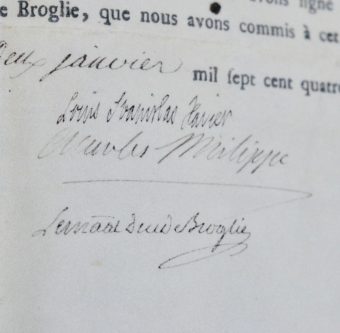 avons signé
e Broglie, que nous avons commis à cet
deux janvier mil sept cent quatre
Louis Stanislas Xavier
Charles Philippe
Le maal Duc de Broglie